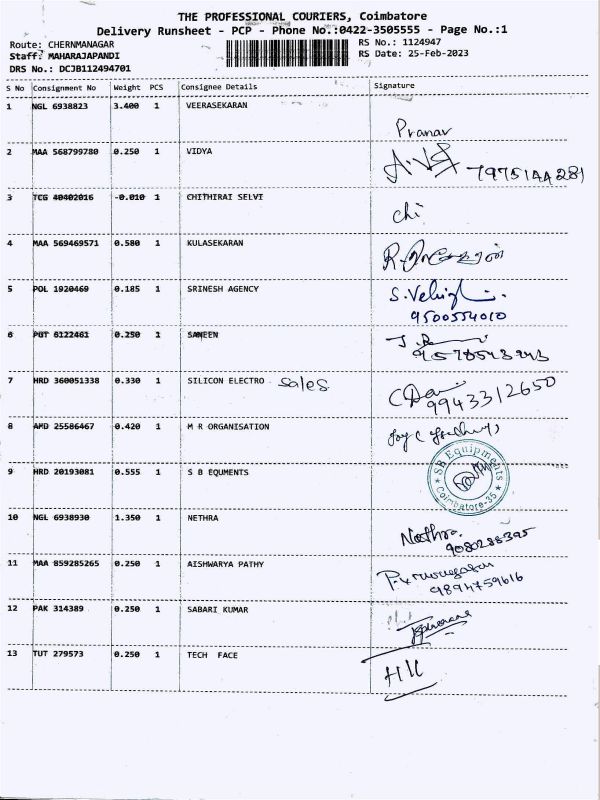 THE PROFESSIONAL COURIERS, Coimbatore
Delivery Runsheet - PCP - Phone No.:0422-3505555 - Page No.:1
Route: CHERNMANAGAR RS No.: 1124947
Staff: MAHARAJAPANDI RS Date: 25-Feb-2023
DRS No.: DCJB112494701
S No Consignment No Weight PCS Consignee Details Signature
1 NGL 6938823 3.400 1 VEERASEKARAN
Pranav
2 MAA 568799780 0.250 1 VIDYA
3 TCG 40402016 -0.010 1 CHITHIRAI SELVI
chi
4 MAA 569469571 0.580 1 KULASEKARAN
5 POL 1920469 0.185 1 SRINESH AGENCY
9500554010
6 PUT 6122461 0.250 1 SANEEN
7 HRD 360051338 0.330 1 SILICON ELECTRO sales
9943312650
8 AMD 25586467 0.420 1 M R ORGANISATION
9 HRD 20193081 0.555 1 S B EQUMENTS
SB Equipments
Coimbatore-35
10 NGL 6938930 1.350 1 NETHRA
Nethra
9080288395
11 MAA 859285265 0.250 1 AISHWARYA PATHY
9894759616
12 PAK 314389 0.250 1 SABARI KUMAR
13 TUT 279573 0.250 1 TECH FACE